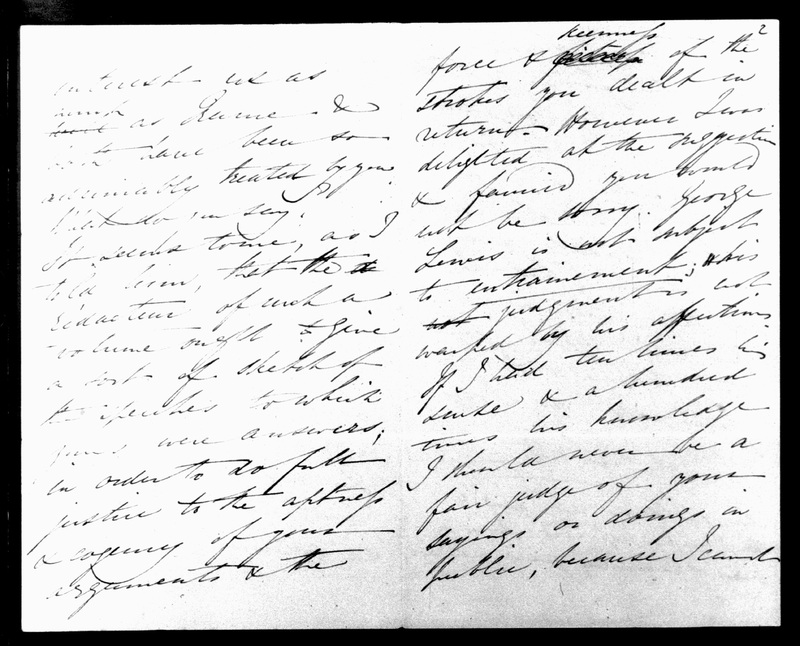 interest us as
much
as &
not have been so
admirably treated by you
What do you say?
It seems to me, as I
told him, that the
Rédacteur of such a
volume ought to give
a sort of sketch of
the speeches to which
yours were answers;
in order to do full
justice to the aptness
& cogency of your
arguments & the
2
keenness
force & of the
strokes you dealt in
return – However I was
delighted at the suggestion
& fancied you would
not be sorry. George
Lewis is not subject
to entrainement; his
not judgment is not
warped by his affections.
If I had ten times his
sense & a hundred
times his knowledge
I should never be a
fair judge of your
sayings or doings in
public, because I cannot